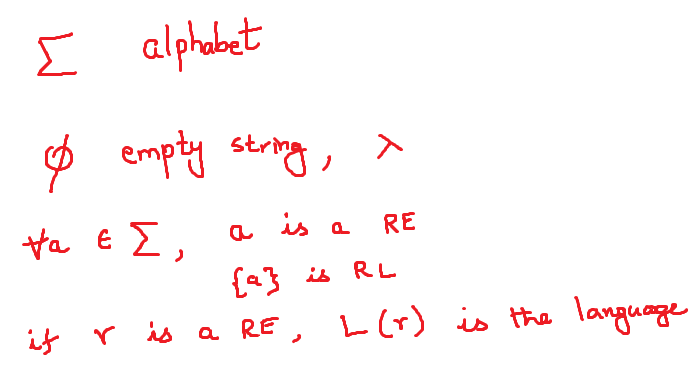 Σ alphabet
φ empty string, λ
∀a ∈ Σ, a is a RE
{a} is RL
if r is a RE, L(r) is the language